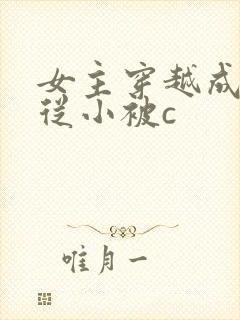 女主穿越成
従小被c
唯月一